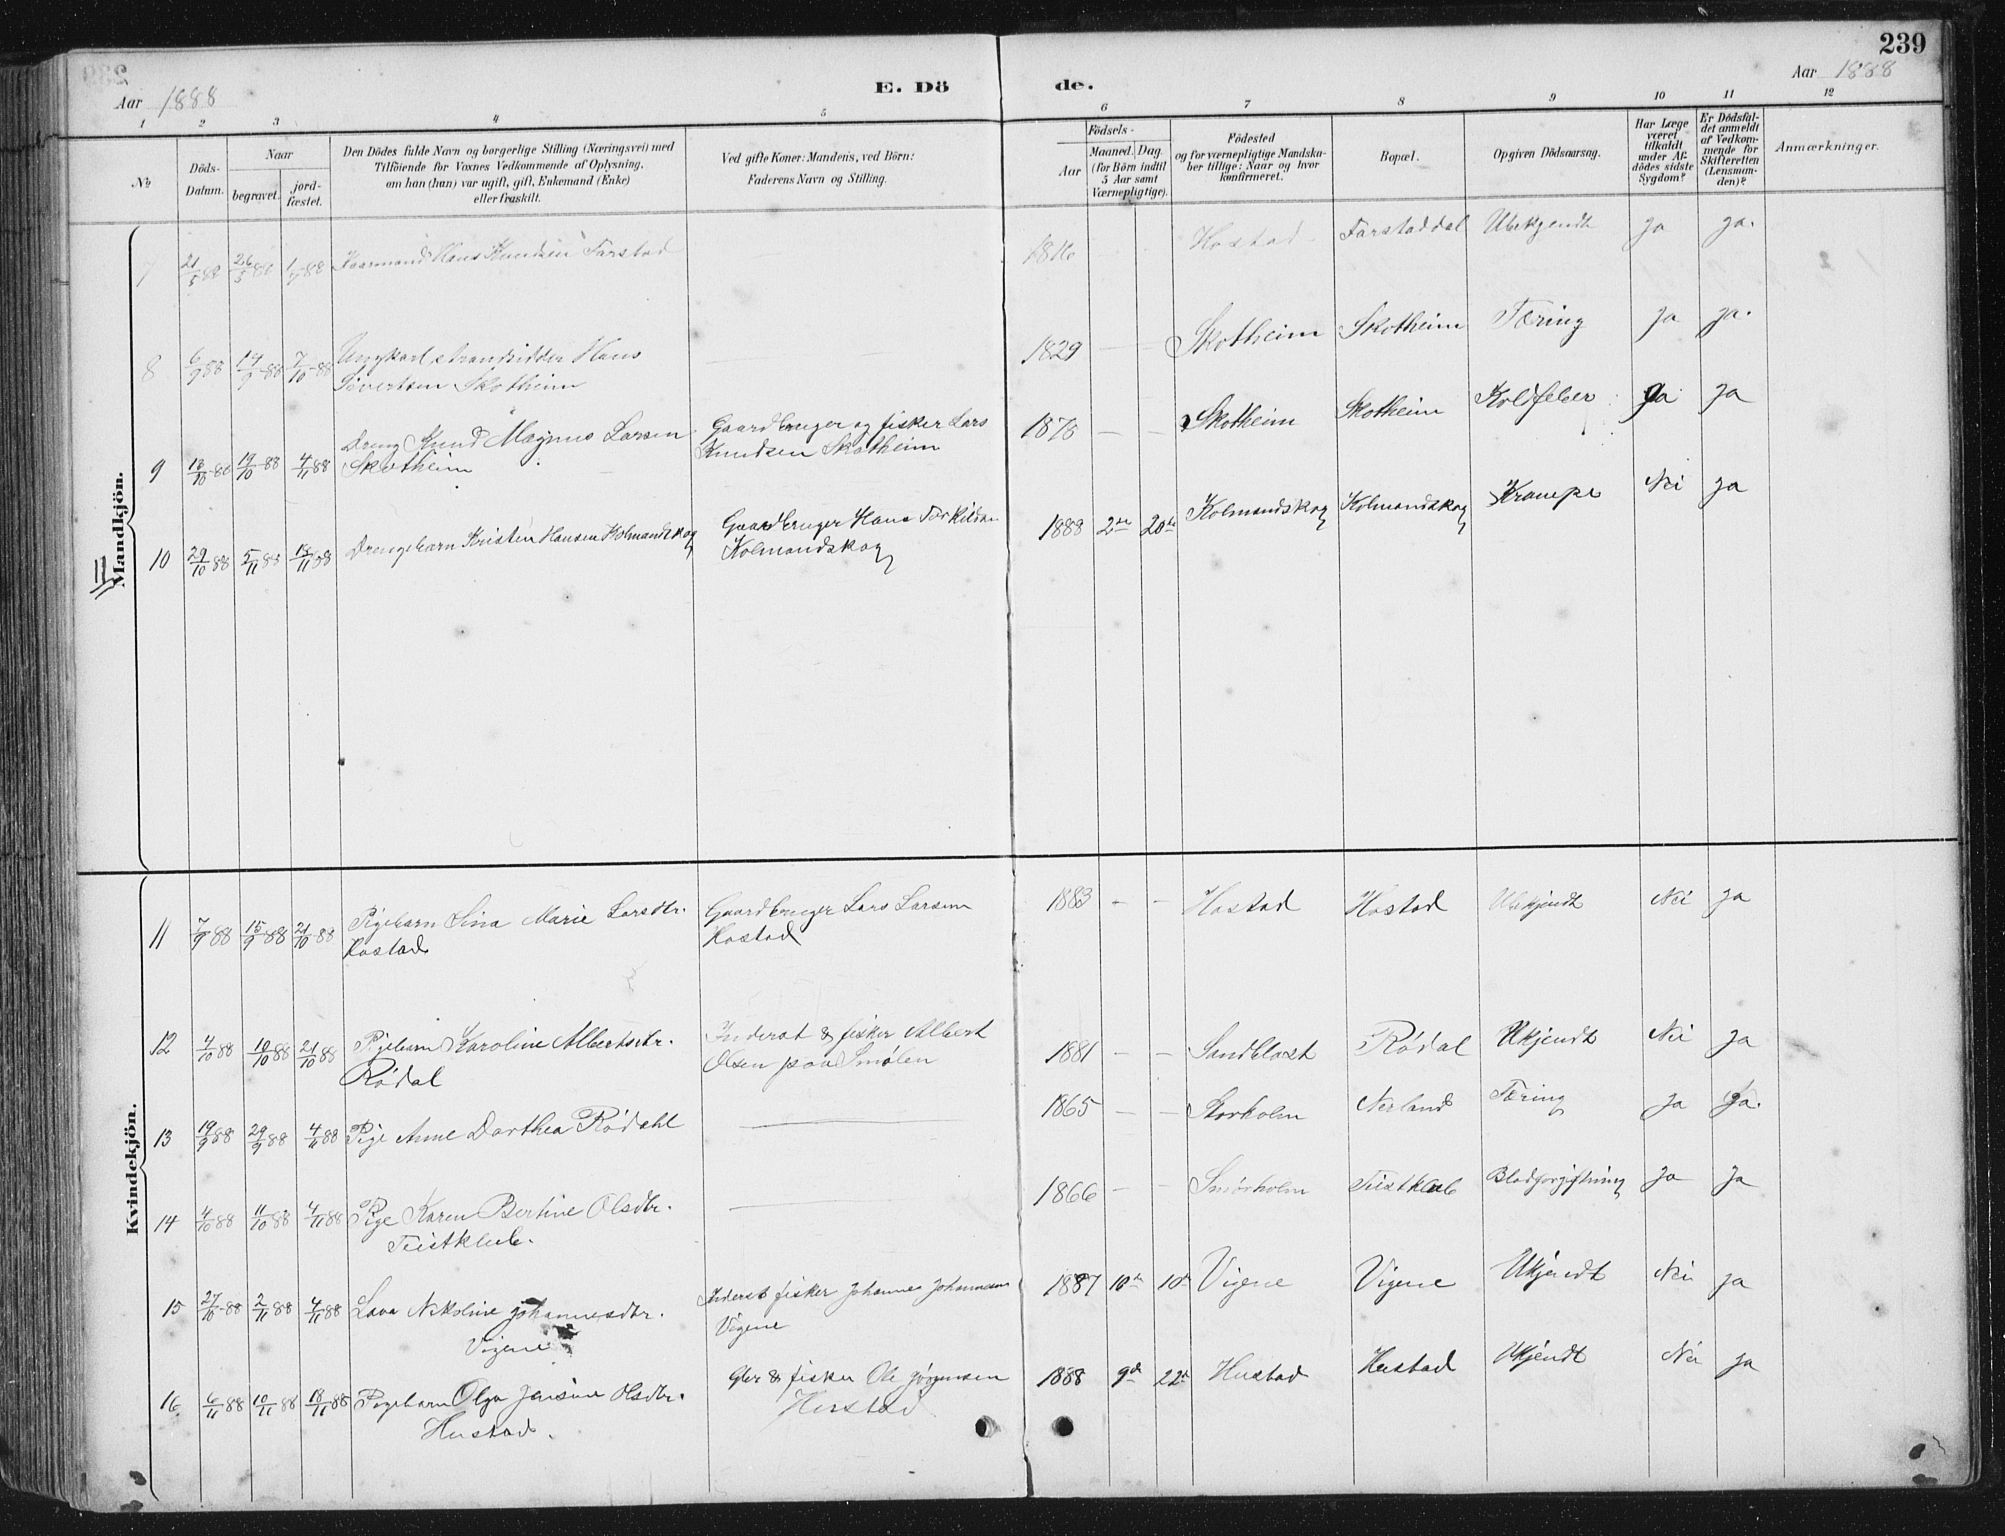 239
Aar 1888 E. Dö de. Aar 1888
1 2 3 4 5 6 7 8 9 10 11 12
No
Döds-Datum.
Naar
begravet.
jord-fæstet.
Den Dödes fulde Navn og borgerlige Stilling (Næringsvei) med
Tilföiende for Voxnes Vedkommende af Oplysning,
om han (hun) var ugift, gift, Enkemand (Enke)
eller fraskilt.
Ved gifte Koner: Mandens, ved Börn:
Faderens Navn og Stilling.
Födsels-
Aar
Maaned. Dag
(for Börn indtil
5 Aar samt
Værnepligtige).
Födested
og for værnepligtige Mandska-
ber tillige: Naar og hvor
konfirmeret.
Bopæl.
Opgiven Dödsaarsag.
Har Læge
været
tilkaldt
under Af-
dödes sidste
Sygdom?
Er Dödsfal-
det anmeldt
af Vedkom-
mende for
Skifteretten
(Lensman-
den)?
Anmærkninger.
Mandkjön.
7 21/5 88 26/5 88 1/7 88 Kaarmand Hans Knudsen Farstad 1816 Hostad Farstaddal Ubekjendt ja ja.
8 6/9 88 14/9 88 7/10 88 Ungkarl Hans
Sivertsen Skotheim 1829 — — Skotheim Skotheim Tæring ja ja.
9 13/10 88 19/10 88 4/11 88 Dreng Knud Magnus Larsen
Skotheim Gaardbruger og fisker Lars
Knudsen Skotheim 1878 — — Skotheim Skotheim Koldfeber Ja ja
10 29/10 88 5/11 88 18/11 88 Drengebarn Kristen Hansen Kolmandskog Gaardbruger Hans Torkildsen
Kolmandskog 1888 2de 20de Kolmandskog Kolmandskog Krampe Nei ja
Kvindekjön.
11 7/9 88 15/9 88 21/10 88 Pigebarn Sina Marie Larsdtr.
Hostad Gaardbruger Lars Larsen
Hostad 1883 — — Hostad Hostad Ubekjendt Nei ja
12 4/10 88 10/10 88 21/10 88 Pigebarn Karoline Albertsdtr.
Rödal Inderst & fisker Albert
Olsen paa Smölen 1881 — — Sandblast Rödal Ukjendt Nei ja
13 19/9 88 29/9 88 4/11 88 Pige Anne Dorthea Rödahl 1865 — — Storholm Nerland Tæring Ja Ja.
14 4/10 88 11/10 88 4/11 88 Pige Karen Bertine Olsdtr.
Teistklub. 1866 — — Smörholm Teistklub Blodforgiftning Ja Ja
15 27/10 88 2/11 88 4/11 88 Lava Nikoline Johannesdtr.
Vigene Inderst fisker Johannes Johannesen
Vigene 1887 10de 10de Vigene Vigene Ukjendt Nei ja
16 6/11 88 10/11 88 18/11 88 Pigebarn Olga Jensine Olsdtr.
Hustad. Gbr & fisker Ole Jörgensen
Hustad 1888 9de 22de Hustad Hustad Ukjendt Nei ja